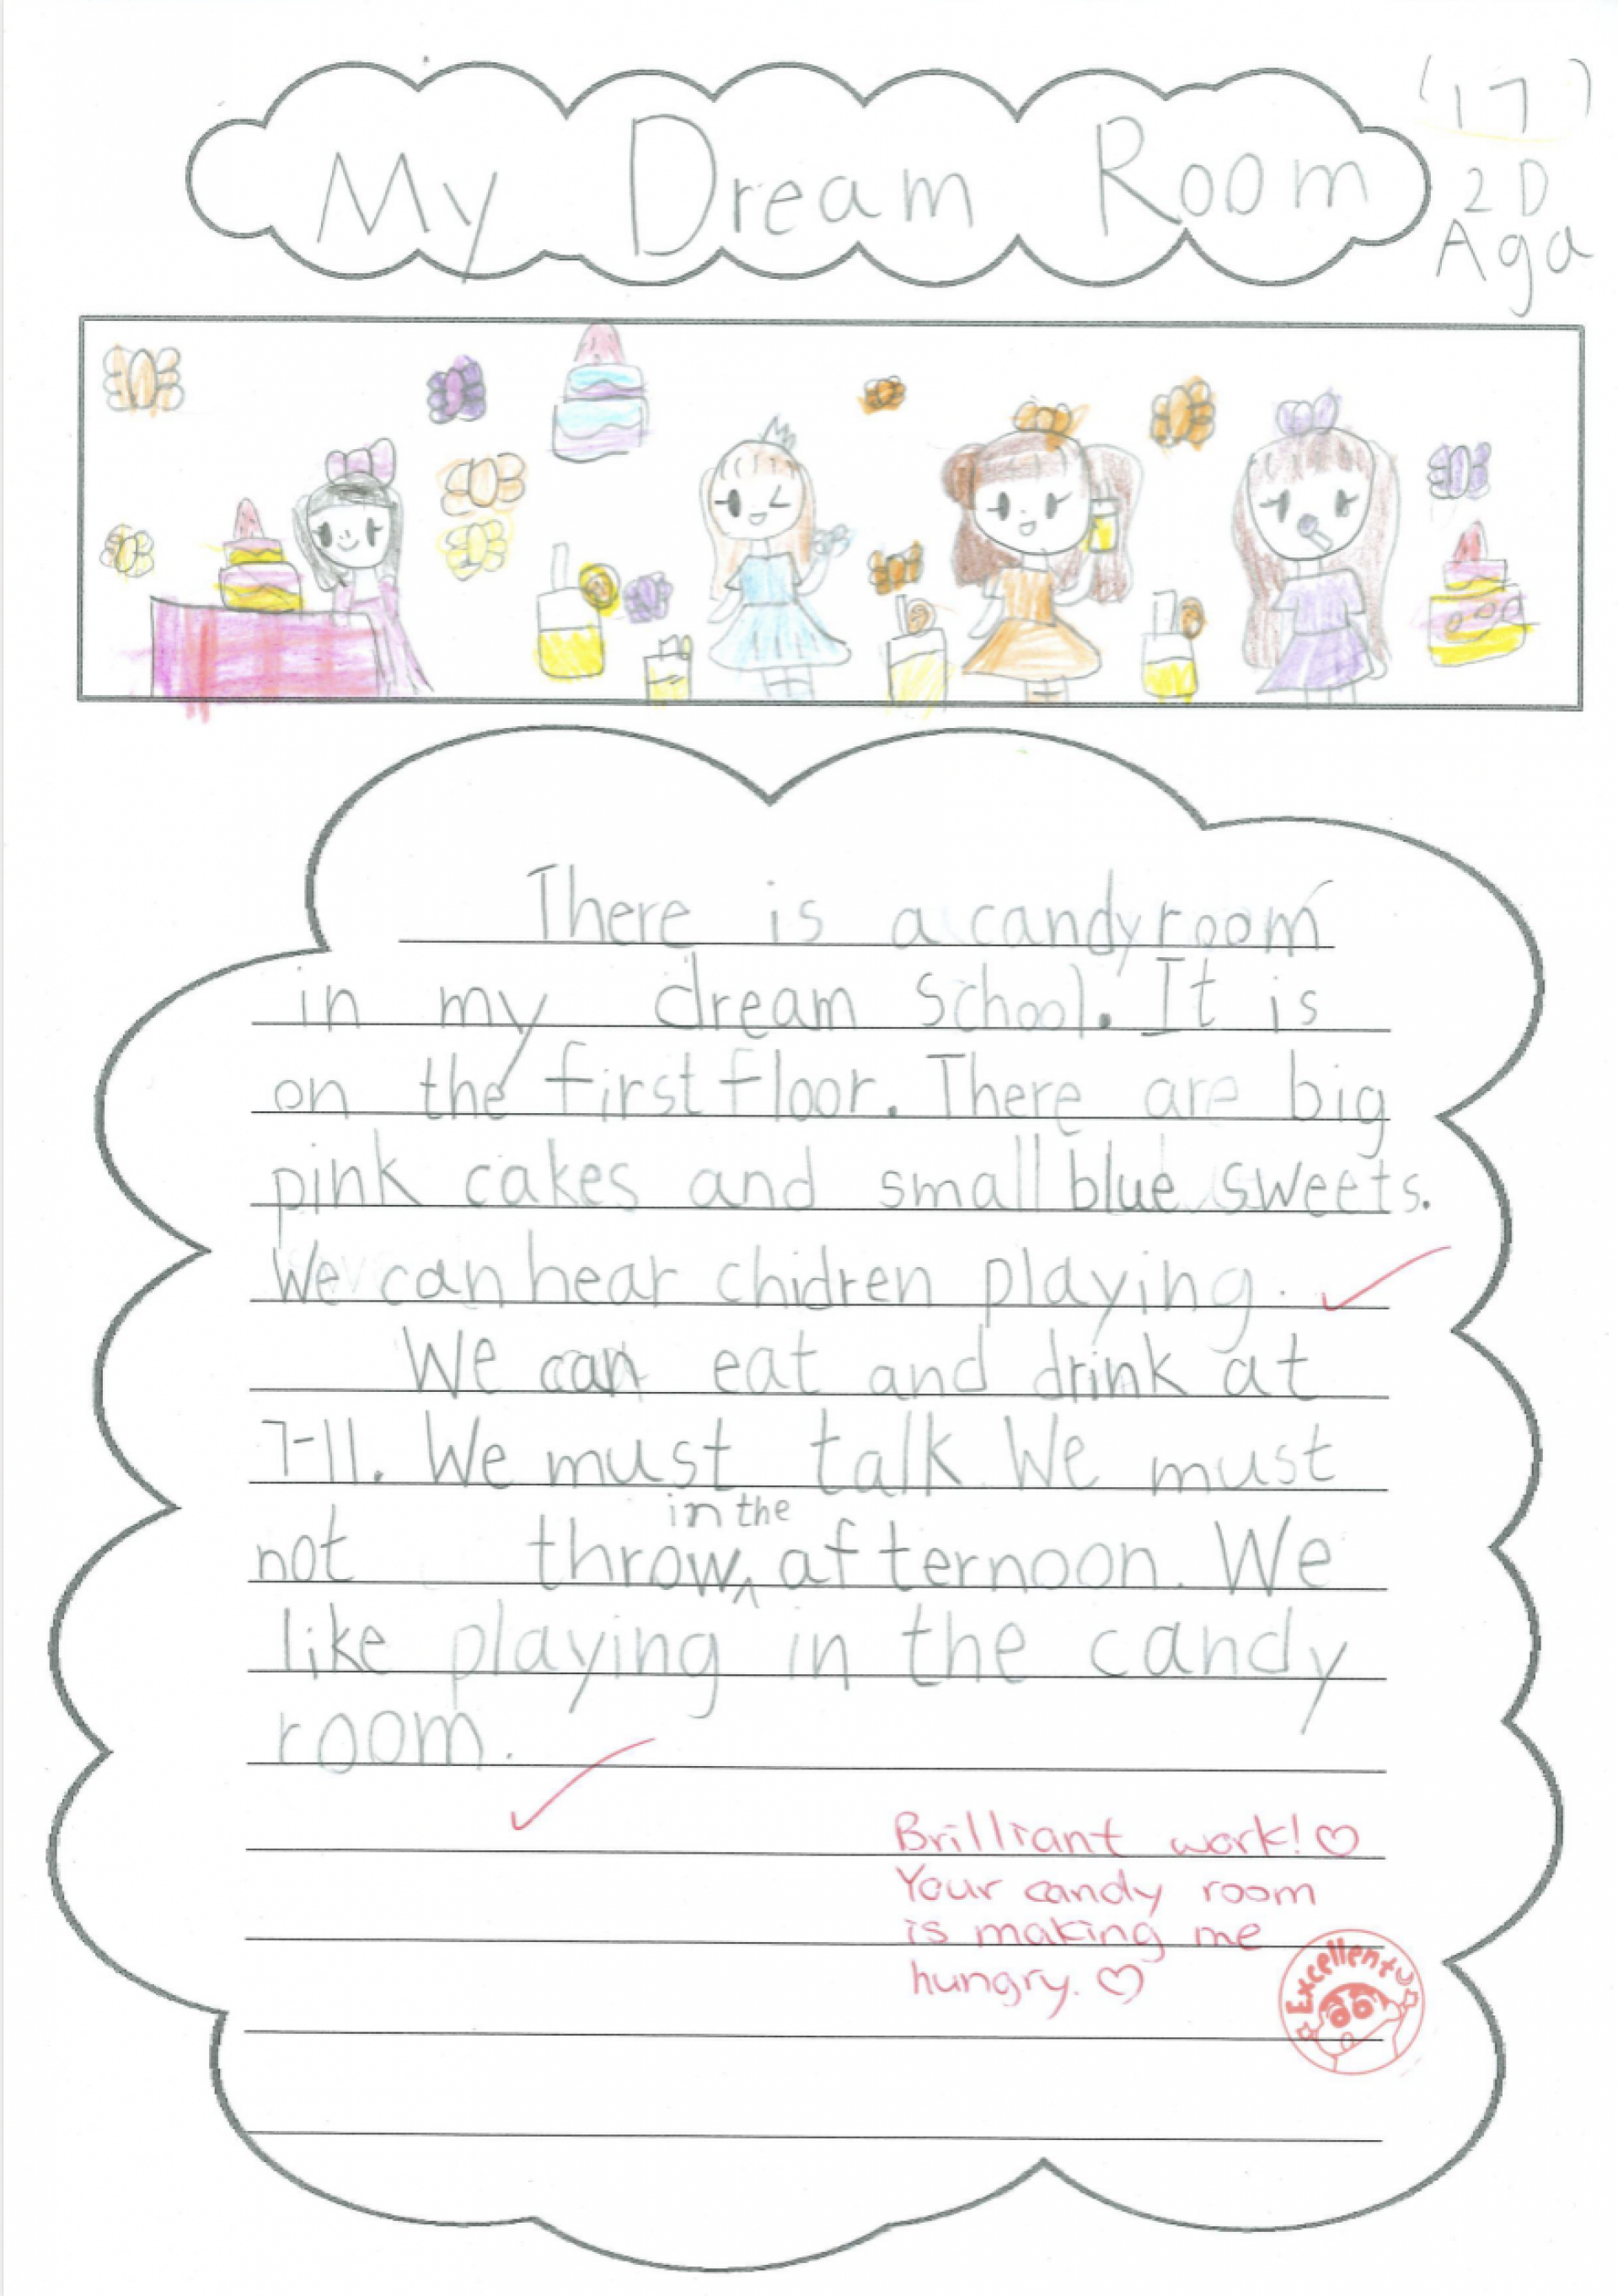 (17)
My Dream Room
2D
Aga
There is a candy room
in my dream school. It is
on the first floor. There are big
pink cakes and small blue sweets.
We can hear chidren playing.
We can eat and drink at
7-11. We must talk We must
in the
not throw ^ afternoon. We
like playing in the candy
room.
Brilliant work! ♡
Your candy room
is making me
hungry. ♡
Excellent